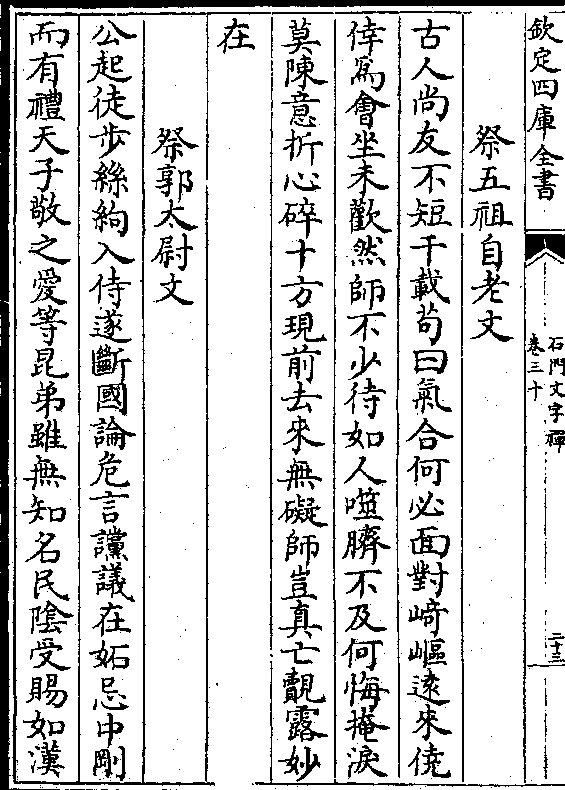 欽定四庫全書
石門文字禪
卷三十
二十三
祭五祖自老文
古人尚友不短千載茍曰氣合何必面對﨑嶇遠來僥
倖為會坐未歡然師不少待如人噬臍不及何悔掩淚
莫陳意折心碎十方現前去來無礙師豈真亡覿露妙
在
祭郭太尉文
公起徒步絲絇入侍遂斷國論危言讜議在妬忌中剛
而有禮天子敬之愛等昆弟雖無知名民陰受賜如漢